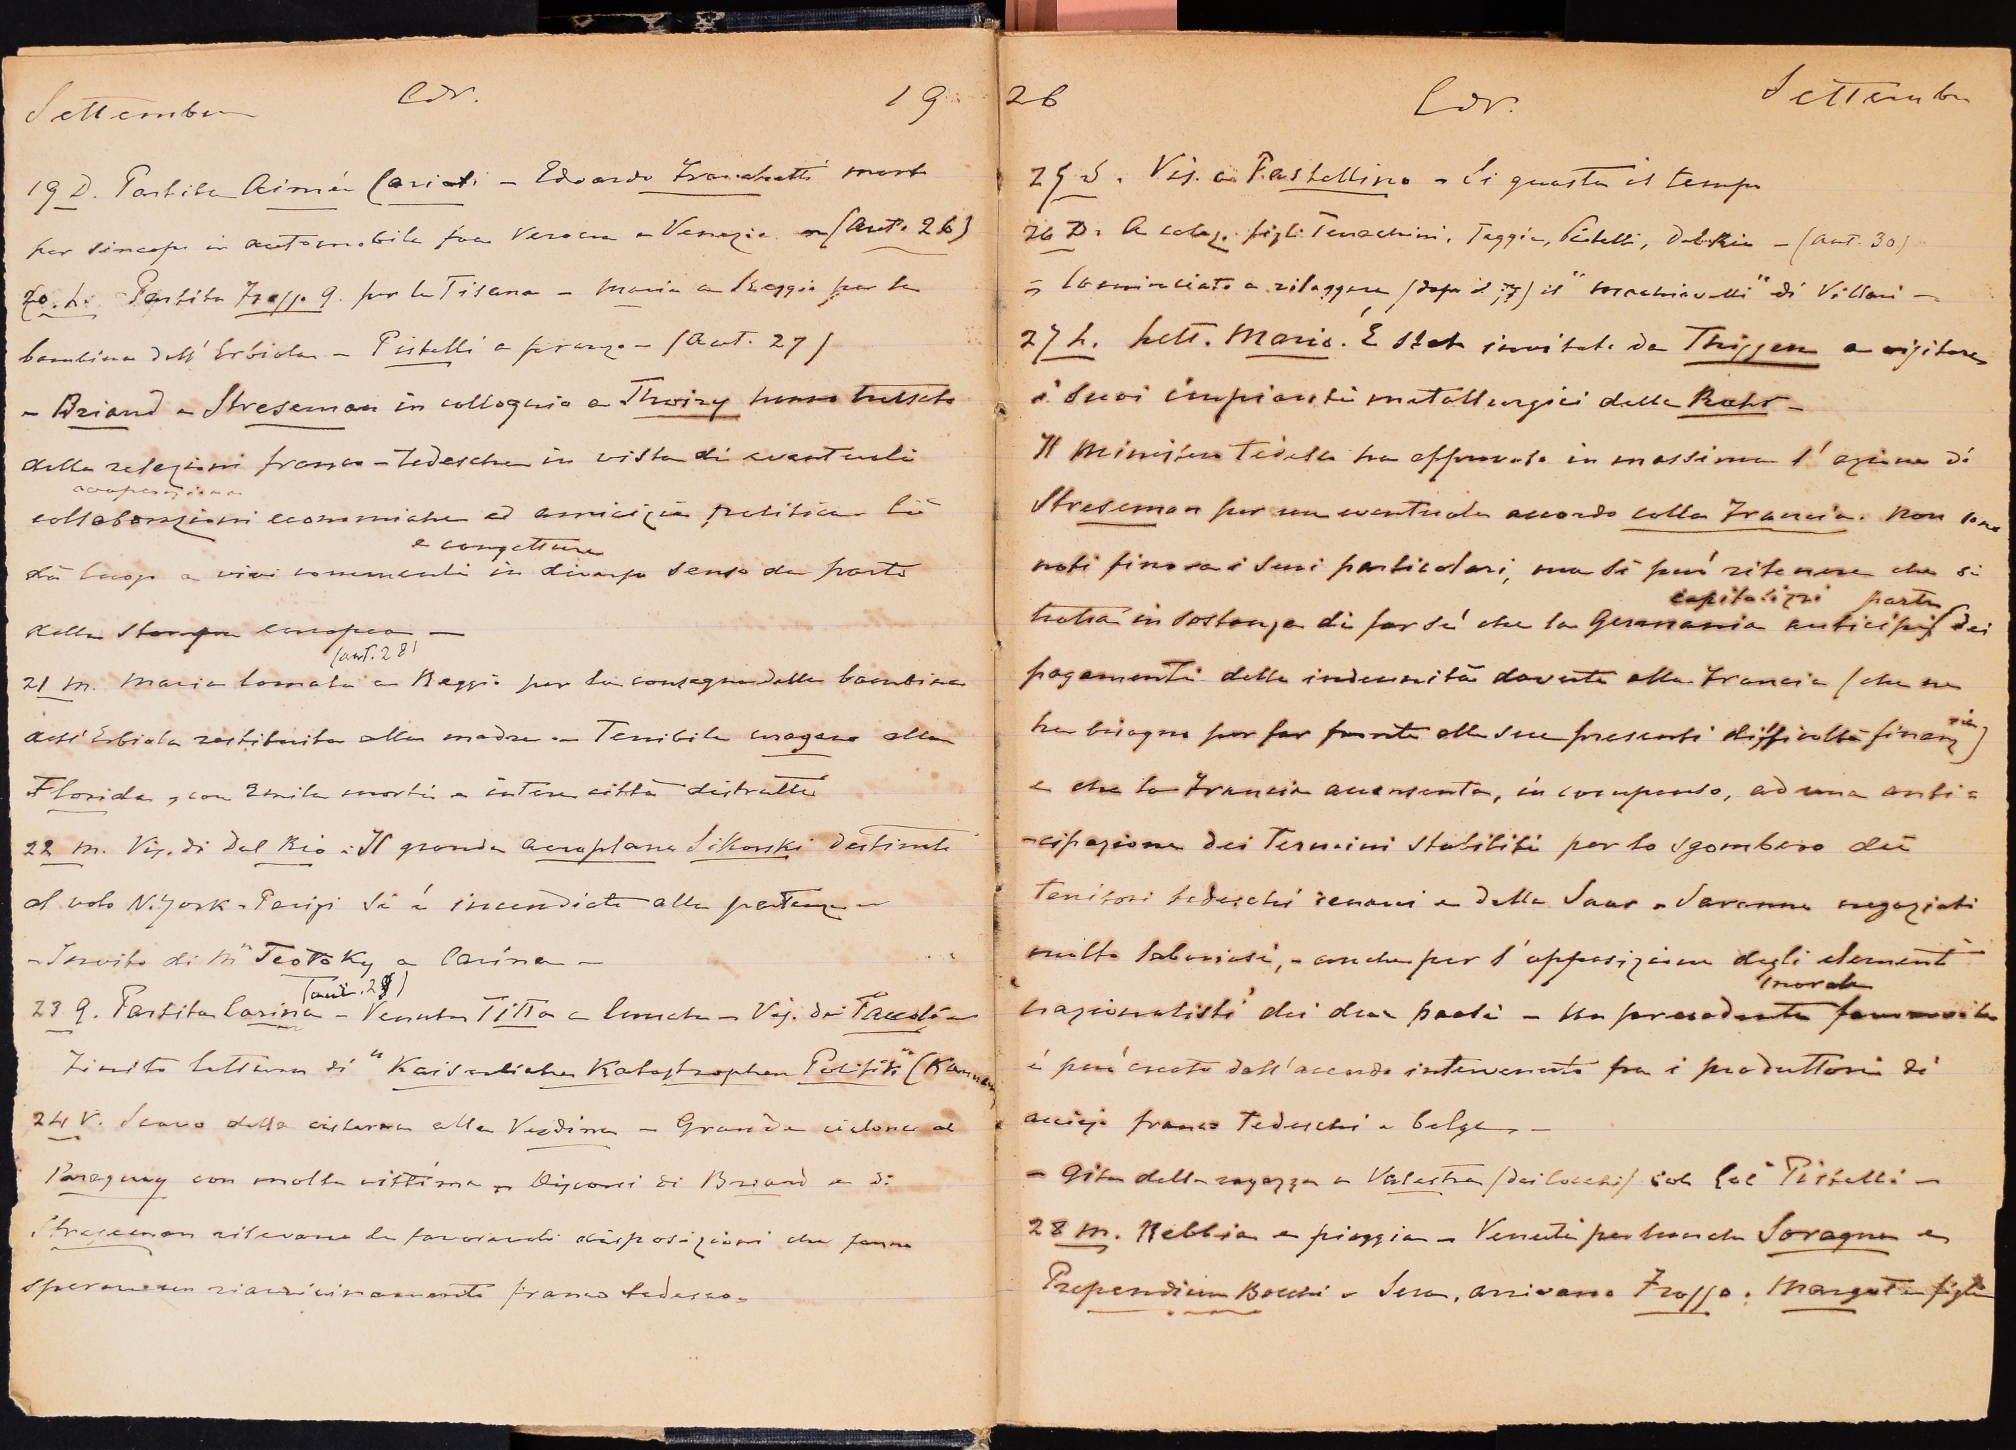 Settembre Cdv. 19
19 D. Partita Aimée Cariati - Edoardo Franchetti morto
per sincope in automobile fra Verona e Venezia - (aut. 26)
20. L. Partita Froppo G. per la Tisana - Maria a Reggio per la
bambina dell' Erbiola - Pistelli a pranzo - (aut. 27)
- Briand e Streseman in colloquio a Thoiry hanno trattato
delle relazioni franco-tedesche in vista di eventuali
cooperazione
collaborazioni economiche ed amicizia politica. Ciò
e congetture
dà luogo a vivi commenti in diverso senso da parte
della stampa europea -
(aut. 28)
21 M. Maria tornata a Reggio per la consegna della bambina
dell' Erbiola restituita alla madre - Terribile uragano alla
Florida, con 2mila morti e intere città distrutte
22 M. Vis. di Del Rio - Il grande aeroplano Sikorski destinato
al volo N. York - Parigi si è incendiato alla partenza -
- Invito di Mr Teotoky a Carina -
(aut. 29)
23 G. Partita Carina - Venuta Titta a lunch - Vis. dei Taccoli -
Finito lettura di "Kaiserliche Katastrophen Politik"
24 V. Scavo della cisterna alla Verdina - Grande ciclone al
Paraguay con molte vittime - Discorsi di Briand e di
Streseman rilevano le favorevoli disposizioni che fanno
sperare un riavvicinamento franco tedesco -
26 Cdv. Settembre
25 S. Vis. a Pastellino - Si guasta il tempo
26 D. A colaz. figli Terrachini, Taggia, Pistelli, Del Rio - (aut. 30)
- Cominciato a rileggere (dopo il) il "Machiavelli" di Villari -
27 L. Lett. Mario. È stato invitato da Thissen a visitare
i suoi impianti metallurgici della Ruhr -
Il Ministero tedesco ha approvato in massima l' azione di
Streseman per un eventuale accordo colla Francia. Non sono
noti finora i suoi particolari, ma si può ritenere che si
capitalizzi parte
tratta in sostanza di far sì che la Germania anticipi dei
pagamenti delle indennità dovute alla Francia (che ne
ha bisogno per far fronte alle sue presenti difficoltà finanzie)
e che la Francia acconsenta, in compenso, ad una anti=
-cipazione dei termini stabiliti per lo sgombero dei
territori tedeschi renani e della Saar - Saranno negoziati
molto laboriosi, - anche per l' opposizione degli elementi
morale
nazionalisti dei due paesi - Un precedente favorevole
è però creato dall' accordo intervenuto fra i produttori di
acciajo franco tedeschi e belge -
- Gita delle ragazze a Valestra (dei Cocchi) col Pistelli -
28 M. Nebbia e pioggia - Venuti per lunch Soragna e
Prependium Bocchi - Sera, arrivano Froppo, Margot e figlie